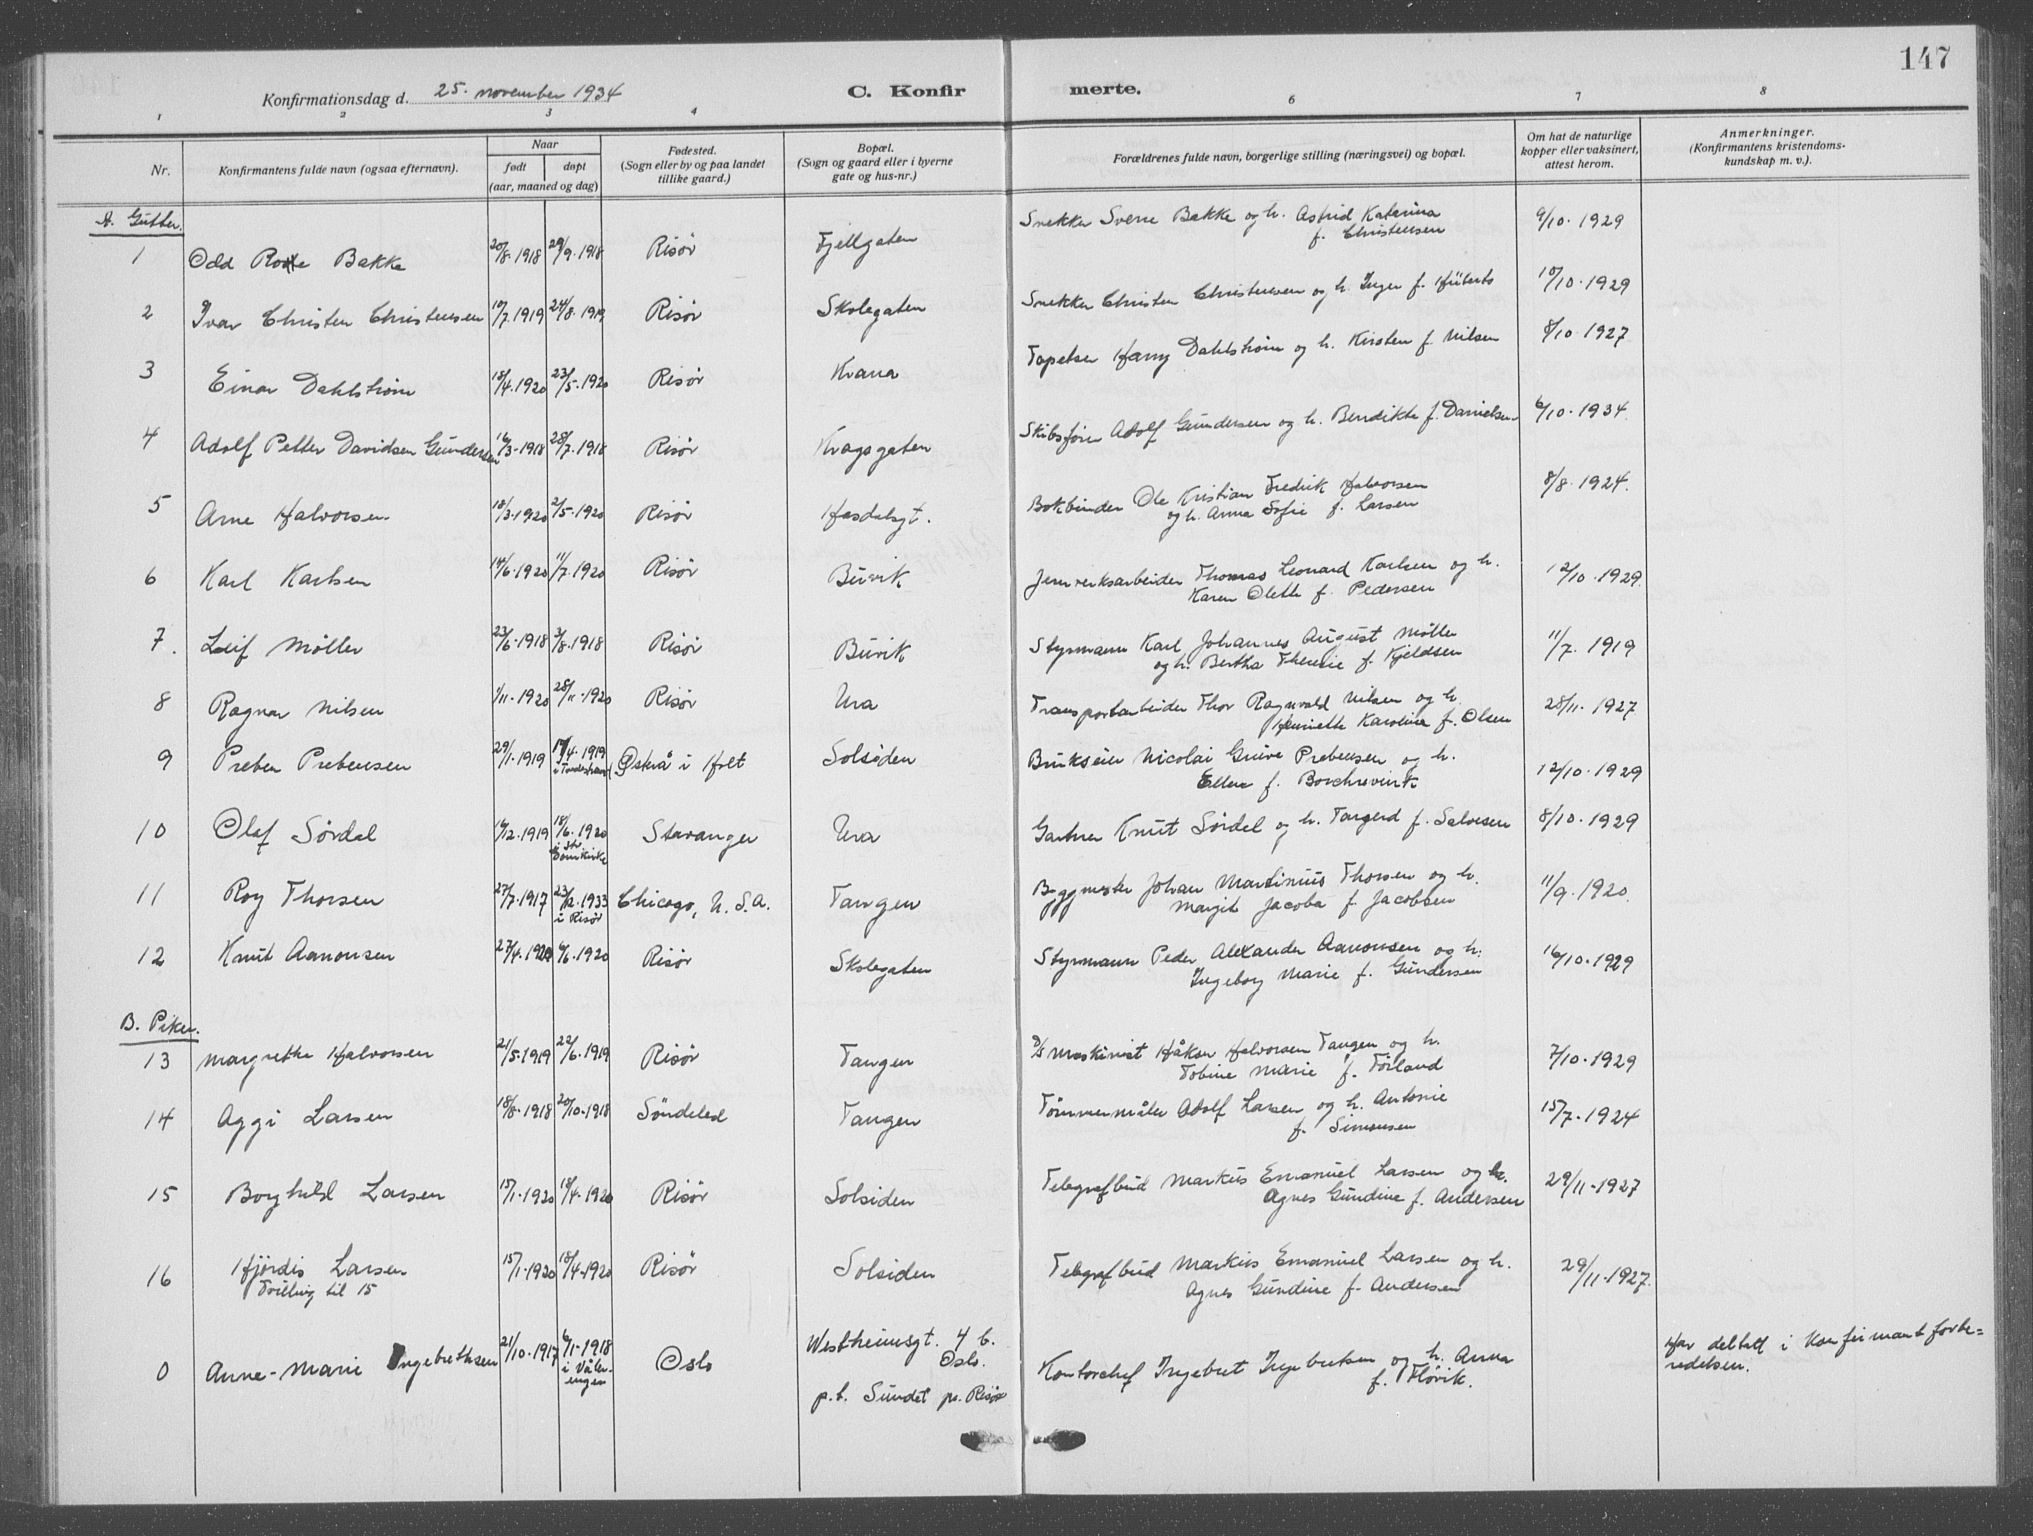 147
Konfirmationsdag d. 25. november 1934 C. Konfirmerte.
1 2 3 4 6 7 8
Nr. Konfirmantens fulde navn (ogsaa efternavn). Naar født døpt (aar, maaned og dag) Fødested. (Sogn eller by og paa landet tillike gaard.) Bopæl. (Sogn og gaard eller i byerne gate og hus-nr.) Forældrenes fulde navn, borgerlige stilling (næringsvei) og bopæl. Om hat de naturlige kopper eller vaksinert, attest herom. Anmerkninger. (Konfirmantens kristendoms-kundskap m. v.).
A. Gutter.
1 Odd Bakke 20/8-1918 29/9-1918 Risør Fjellgaten Snekker Sverre Bakke og h. Astrid Katarina 9/10-1929
f. Christensen
2 Ivar Christen Christensen 10/7-1919 24/8-1919 Risør Skolegaten Snekker Christen Christensen og h. Inger f. 10/10-1929
3 Einar Dahlstrøm 18/4-1920 23/5-1920 Risør Krana Tapetser Harry Dahlstrøm og h. Kirsten f. Nilsen 8/10-1927
4 Adolf Petter Davidsen Gundersen 16/3-1918 28/7-1918 Risør Kragsgaten Skibsfører Adolf Gundersen og h. Bendikte f. Danielsen 6/10-1934
5 Arne Halvorsen 18/3-1920 2/5-1920 Risør Hasdalsgt. Bokbinder Ole Kristian Fredrik Halvorsen 8/8-1924.
og h. Anna Sofie f. Larsen
6 Karl Karlsen 14/6-1920 11/7-1920 Risør Buvik Jernverksarbeider Thomas Leonard Karlsen og h. 12/10-1929.
Karen Olette f. Pedersen
7. Leif Møller 23/6-1918 3/8-1918 Risør Buvik Styrmann Karl Johannes August Møller 11/7-1919
og h. Bertha Therese f. Kjeldsen
8 Ragnar Nilsen 1/11-1920 28/11-1920 Risør Ura Transportarbeider Thor Ragnvald Nilsen og h. 28/11-1927
Henriette Karoline f. Olsen
9 Preben Prebensen 29/1-1919 19/4-1919 i Tvedestrand Østerå i Holt Solsiden Brukseier Nicolai Grieve Prebensen og h. 12/10-1929
Ellen f. Borchrevink
10 Olaf Sørdal 16/12-1919 18/6-1920 i St. Domkirke Stavanger Ura Gartner Knut Sørdal og h. Torgerd f. Salvesen 8/10-1929
11 Roy Thorsen 27/7-1917 23/12-1933 i Risør Chicago, U.S.A. Tangen Byggmester Johan Martinius Thorsen og h. 11/9-1920.
Margit Jacoba f. Jacobsen
12 Knut Aanonsen 27/4-1920 6/6-1920 Risør Skolegaten Styrmann Peder Alexander Aanonsen og h. 16/10-1929
Ingeborg Marie f. Gundersen
B. Piker.
13 Margrethe Halvorsen 21/5-1919 22/6-1919 Risør Tangen D/S Maskinist Håkon Halvorsen Tangen og h. 7/10-1929
Tobine Marie f. Førland
14 Aggi Larsen 18/8-1918 20/10-1918 Søndeled Tangen Tømmermåler Adolf Larsen og h. Antonie 15/7-1924
f. Simonsen
15 Borghild Larsen 15/1-1920 18/4-1920 Risør Solsiden Telegrafbud Markus Emanuel Larsen og h. 29/11-1927
Agnes Gundine f. Andersen
16 Hjørdis Larsen 15/1-1920 18/4-1920 Risør Solsiden Telegrafbud Markus Emanuel Larsen og h. 29/11-1927.
Tvilling til 15 Agnes Gundine f. Andersen
0 Anne-Marie Ingebrethsen 21/10-1917 6/1-1918 i Våler-engen Oslo Westheimsgt. 4 b. Oslo. Kontorchef Ingebret Ingebretsen og h. Anna f. Fløvik. Har deltatt i konfirmantforbe=
redelsen.
p.t. Sundet pr. Risør